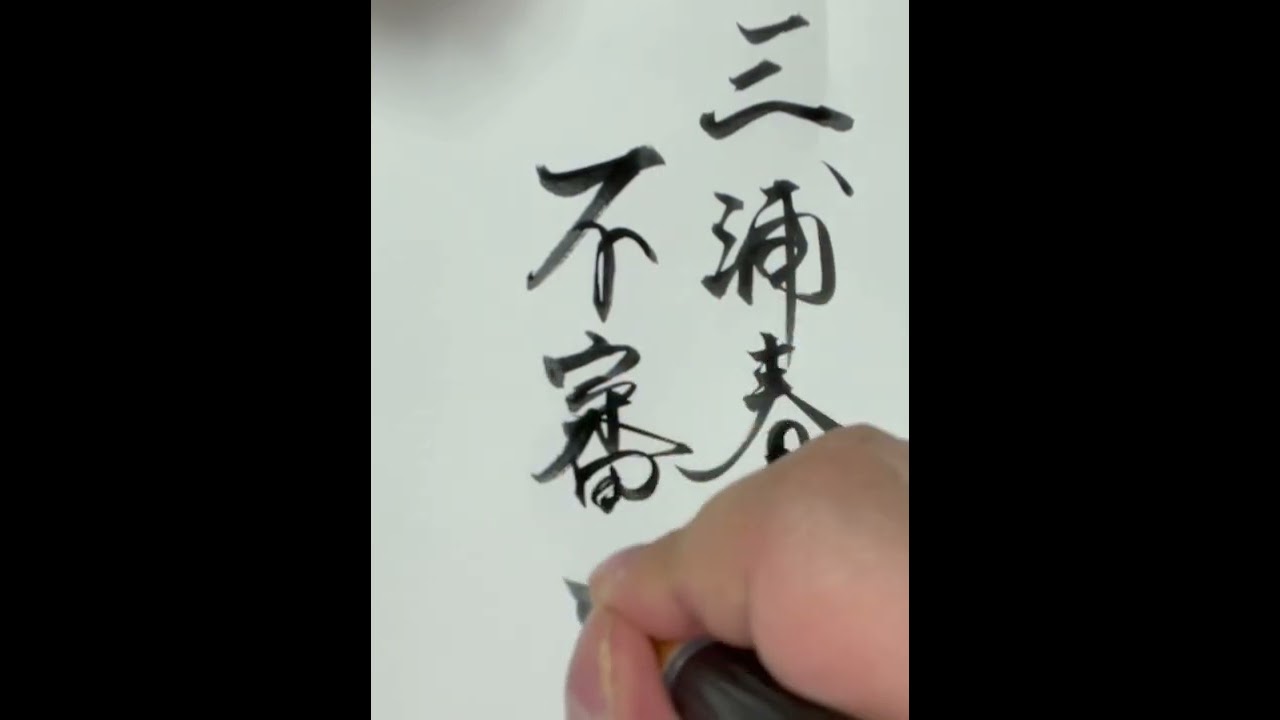 三浦春
不審